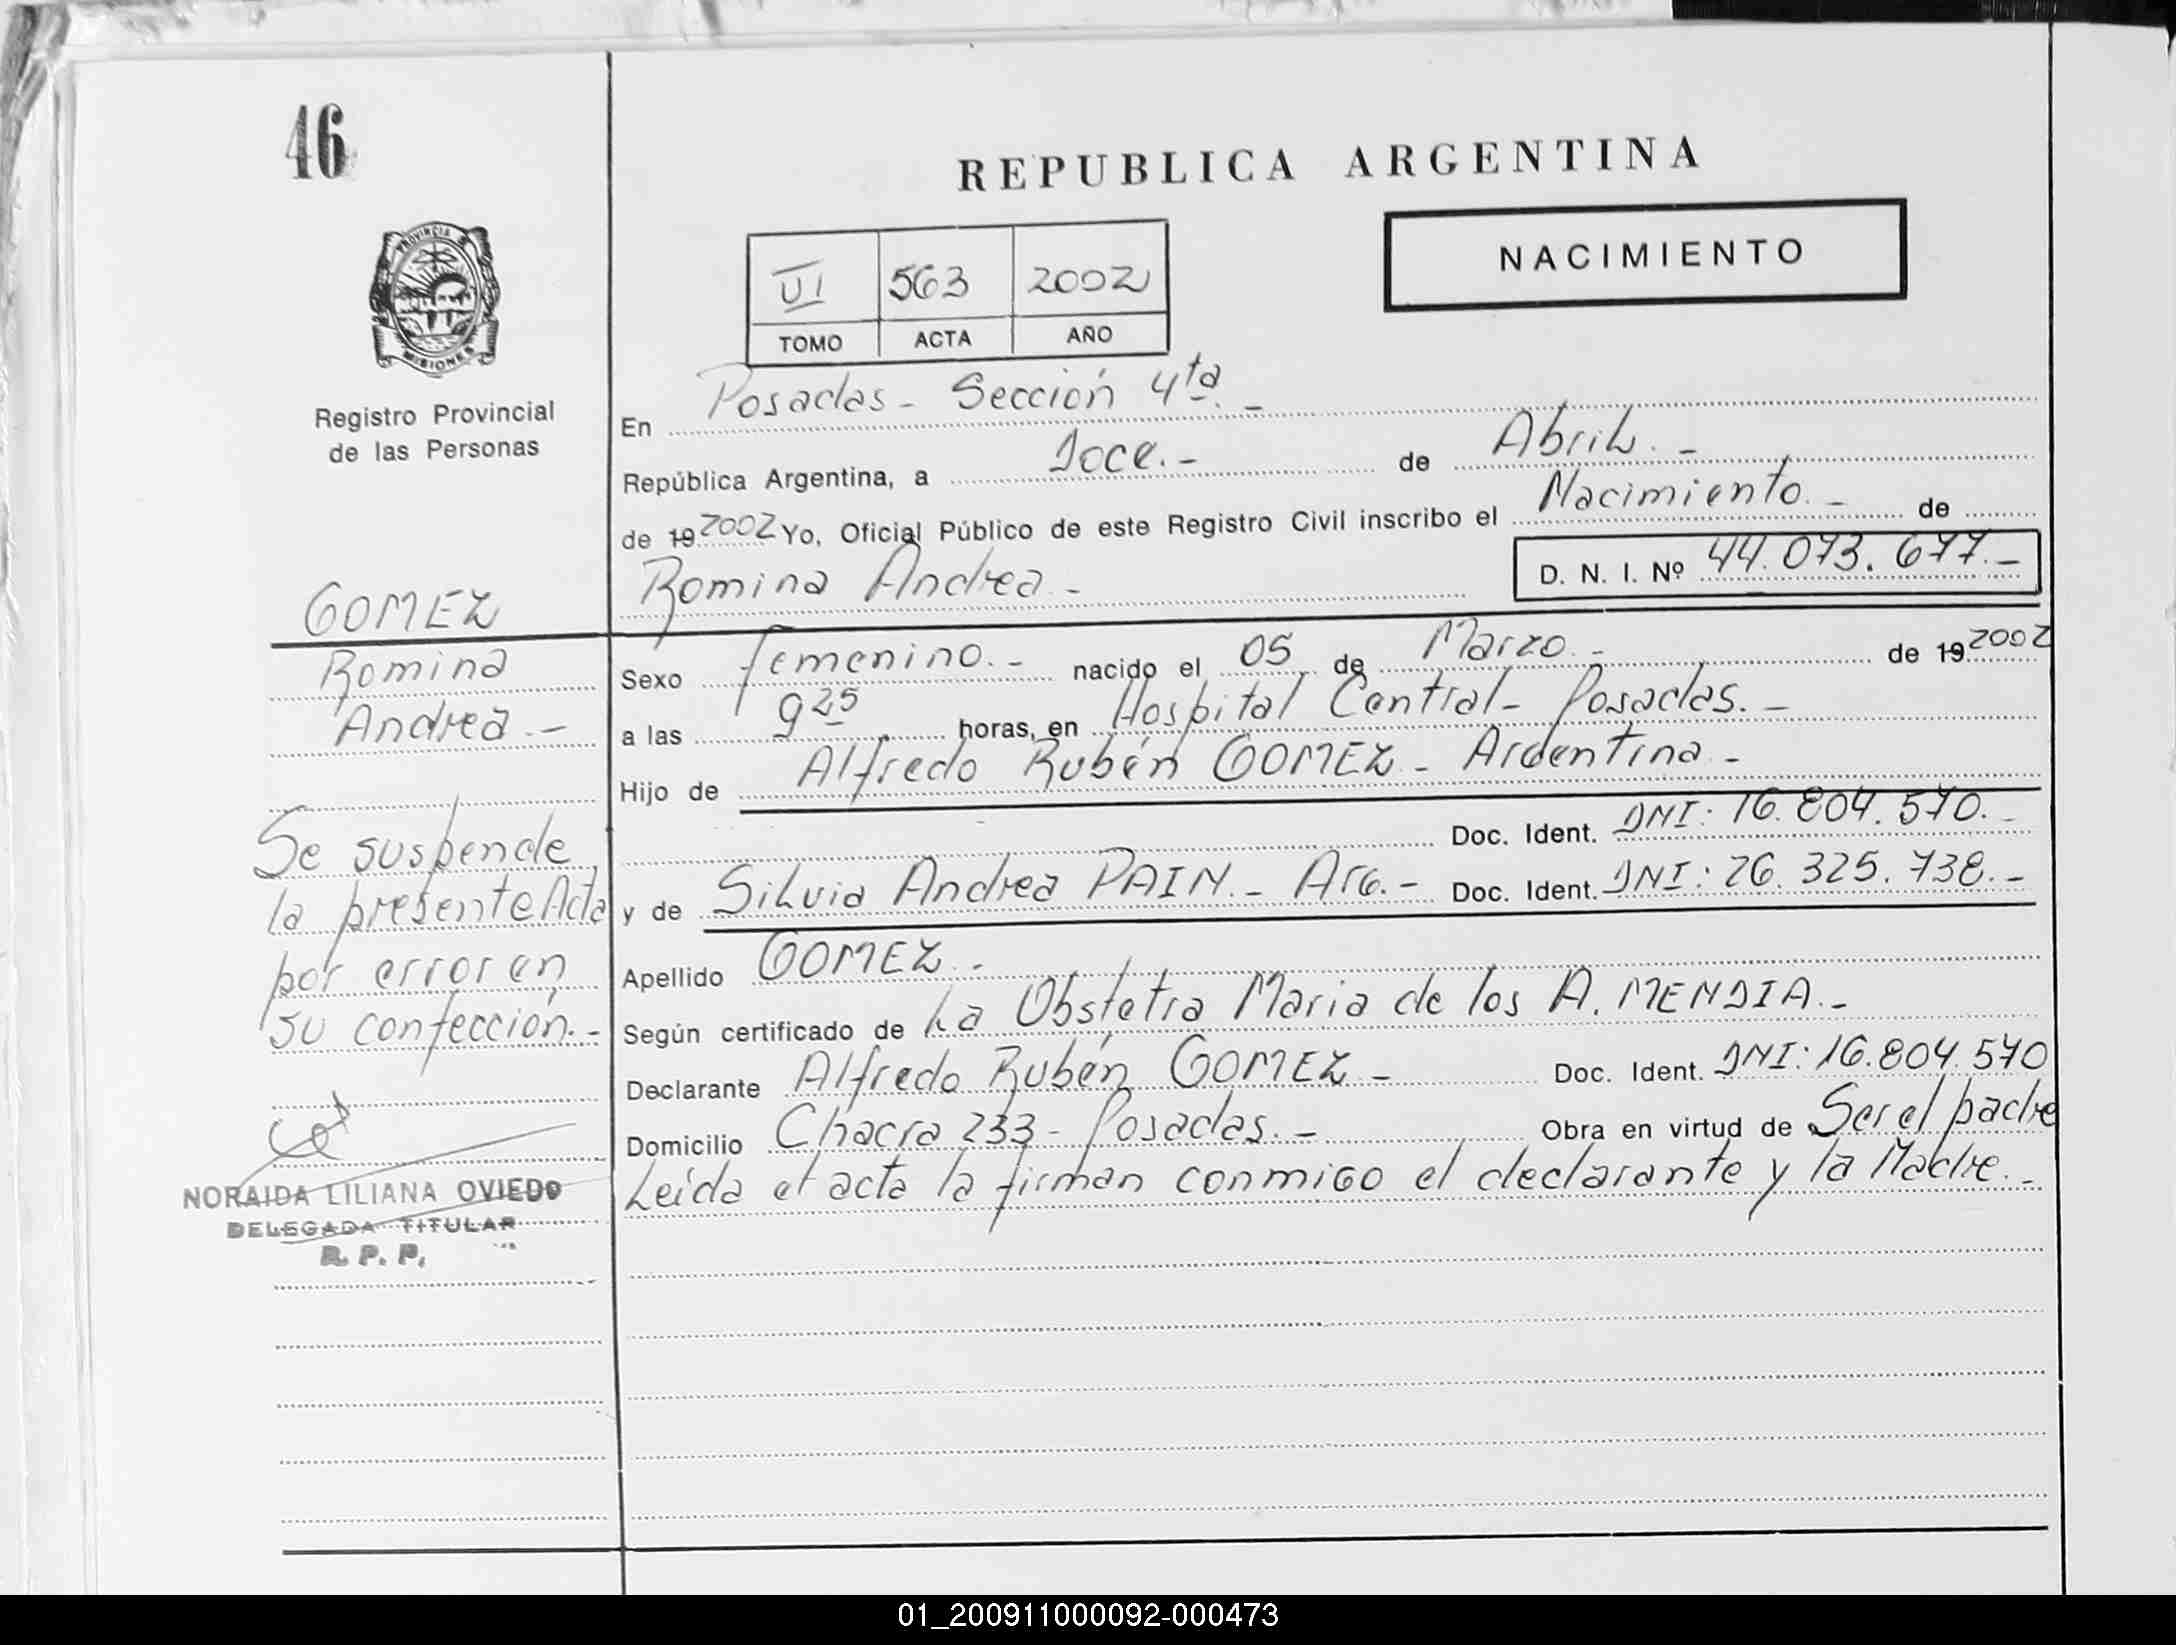 46
REPUBLICA ARGENTINA
NACIMIENTO
VI 563 2002
TOMO ACTA AÑO
PROVINCIA
MISIONES
Registro Provincial
de las Personas
En Posadas - Sección 4ta. -
República Argentina, a Doce. - de Abril. -
de 19 2002 Yo, Oficial Público de este Registro Civil inscribo el Nacimiento. - de
Romina Andrea. - D. N. I. Nº 44.073.677. -
GOMEZ
Romina
Andrea. -
Sexo femenino. - nacido el 05 de Marzo. - de 19 2002
a las 9 25 horas, en Hospital Central - Posadas. -
Hijo de Alfredo Rubén GOMEZ - Argentina. -
Doc. Ident. DNI: 16.804.570. -
y de Silvia Andrea PAIN. - Arg. - Doc. Ident. DNI: 26.325.738. -
Apellido GOMEZ. -
Según certificado de La Obstetra Maria de los A. MENDIA. -
Declarante Alfredo Rubén GOMEZ - Doc. Ident. DNI: 16.804.570
Domicilio Chacra 233 - Posadas. - Obra en virtud de Ser el padre
Leída el acta la firman conmigo el declarante y la Madre. -
Se suspende
la presente Acta
por error en
su confección. -
NORAIDA LILIANA OVIEDO
DELEGADA TITULAR
R. P. P.
01_200911000092-000473